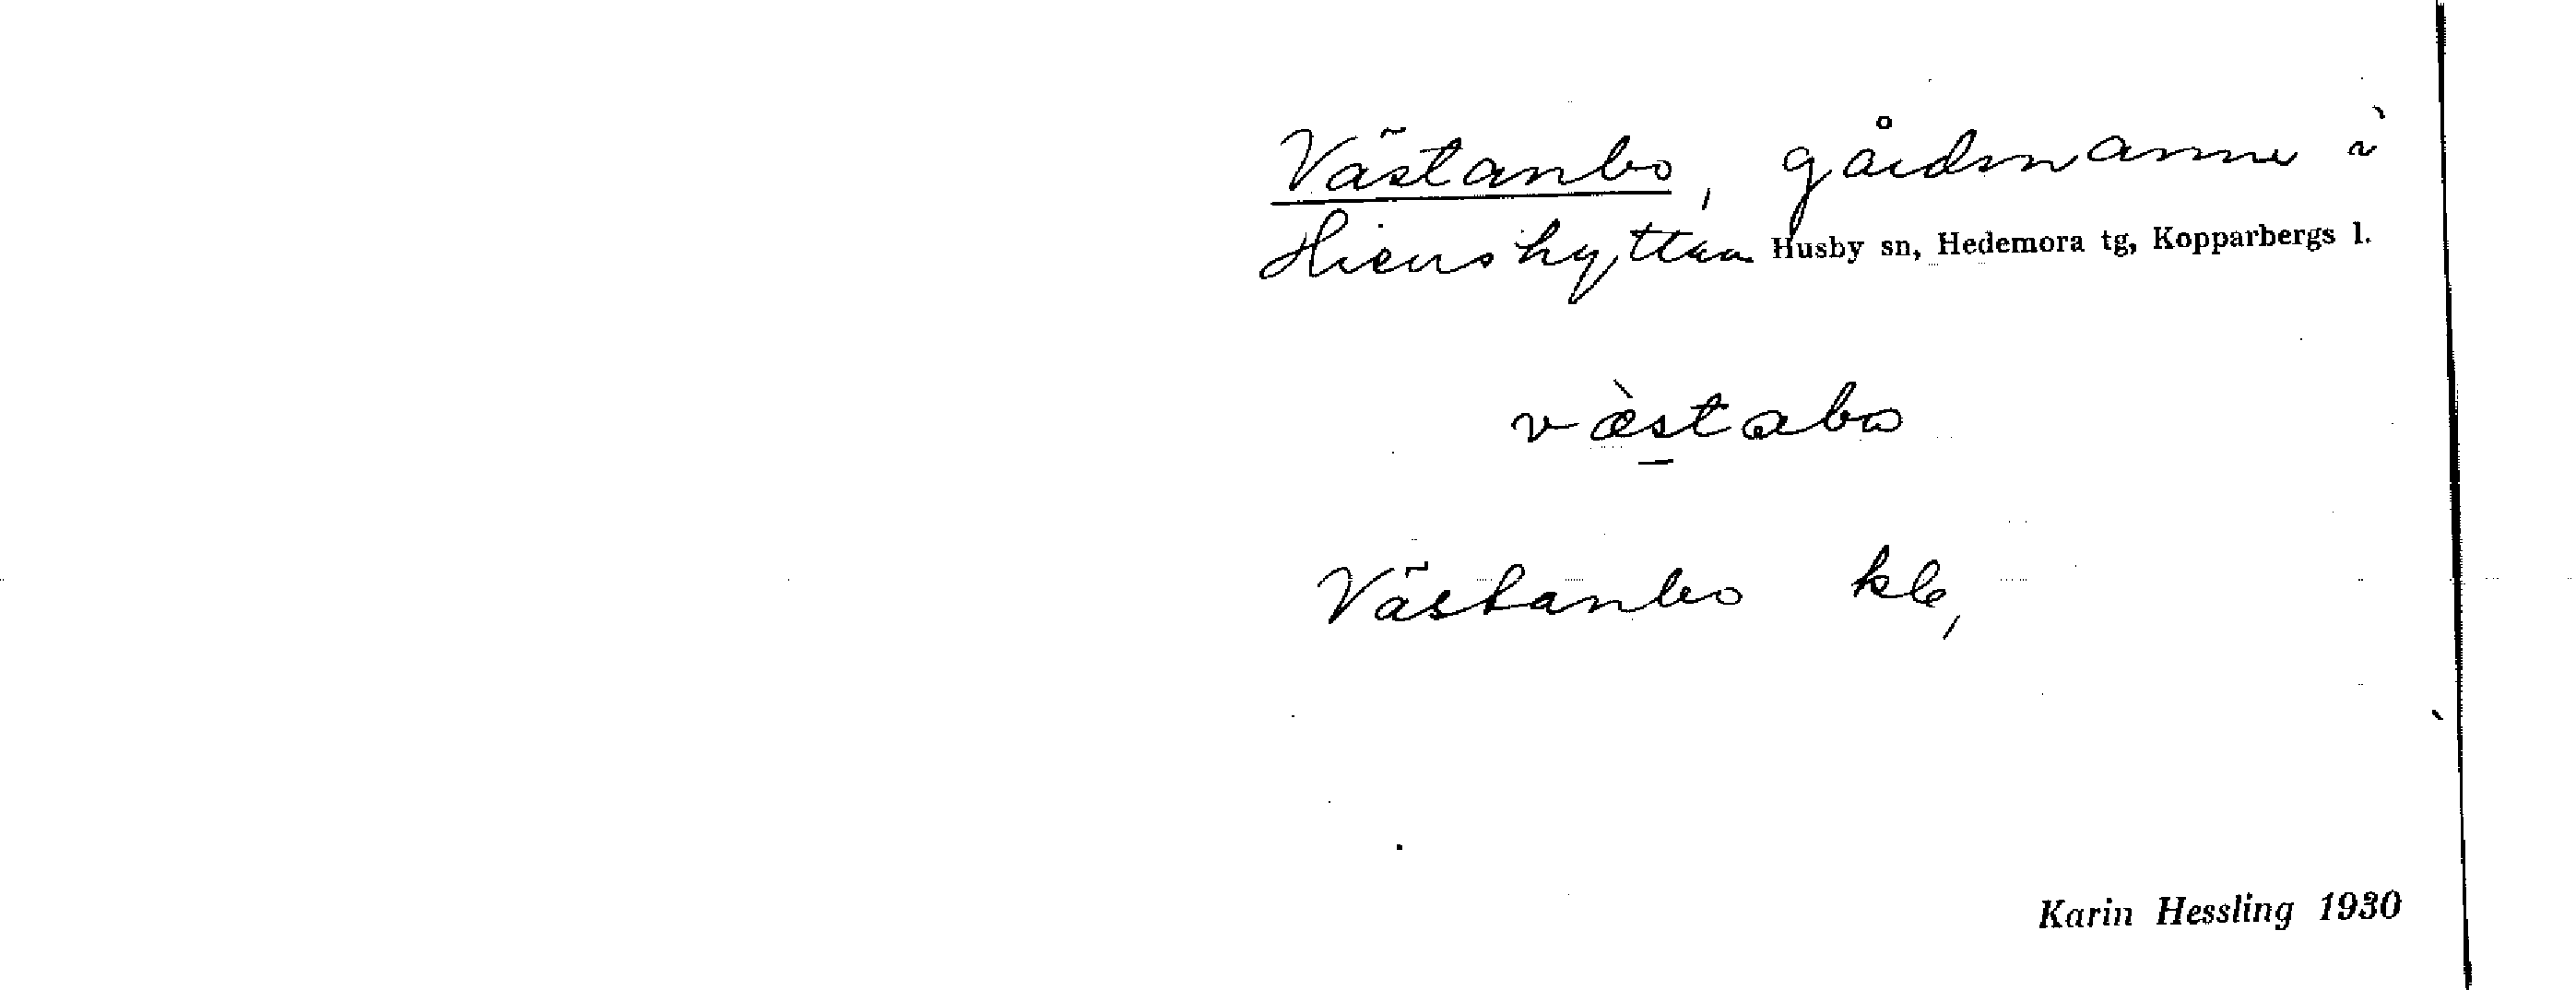 Västanbo, gårdsnamn i
Hienshyttan Husby sn, Hedemora tg, Kopparbergs l.
vǽstabo
Västanbo kb,
Karin Hessling 1930